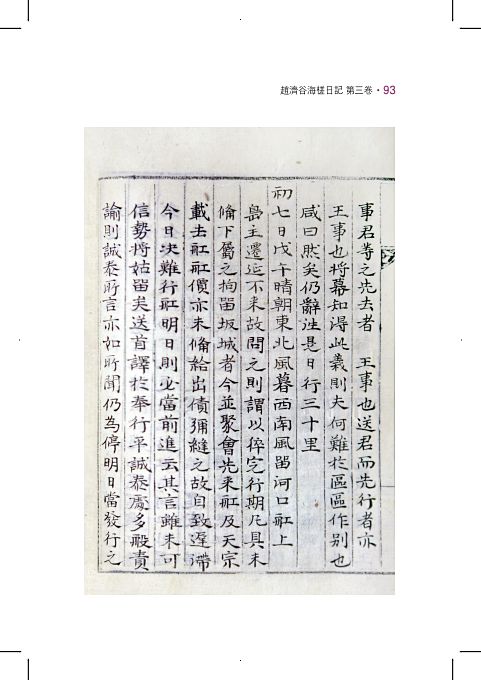 趙濟谷海槎日記 第三卷 • 93
事君等之先去者 王事也送君而先行者亦
王事也將幕知得此義則夫何難於區區作別也
咸曰然矣仍辭往是日行三十里
初七日戊午晴朝東北風暮西南風留河口舡上
島主遷延不來故問之則謂以猝定行期凡具未
備下屬之拘留坂城者今並聚會先來舡及天宗
載去舡舡價亦未備給出債彌縫之故自致遲滯
今日決難行舡明日則必當前進云其言雖未可
信勢將姑留矣送首譯於奉行平誠泰處多般責
諭則誠泰所言亦如所聞仍爲停明日當發行之